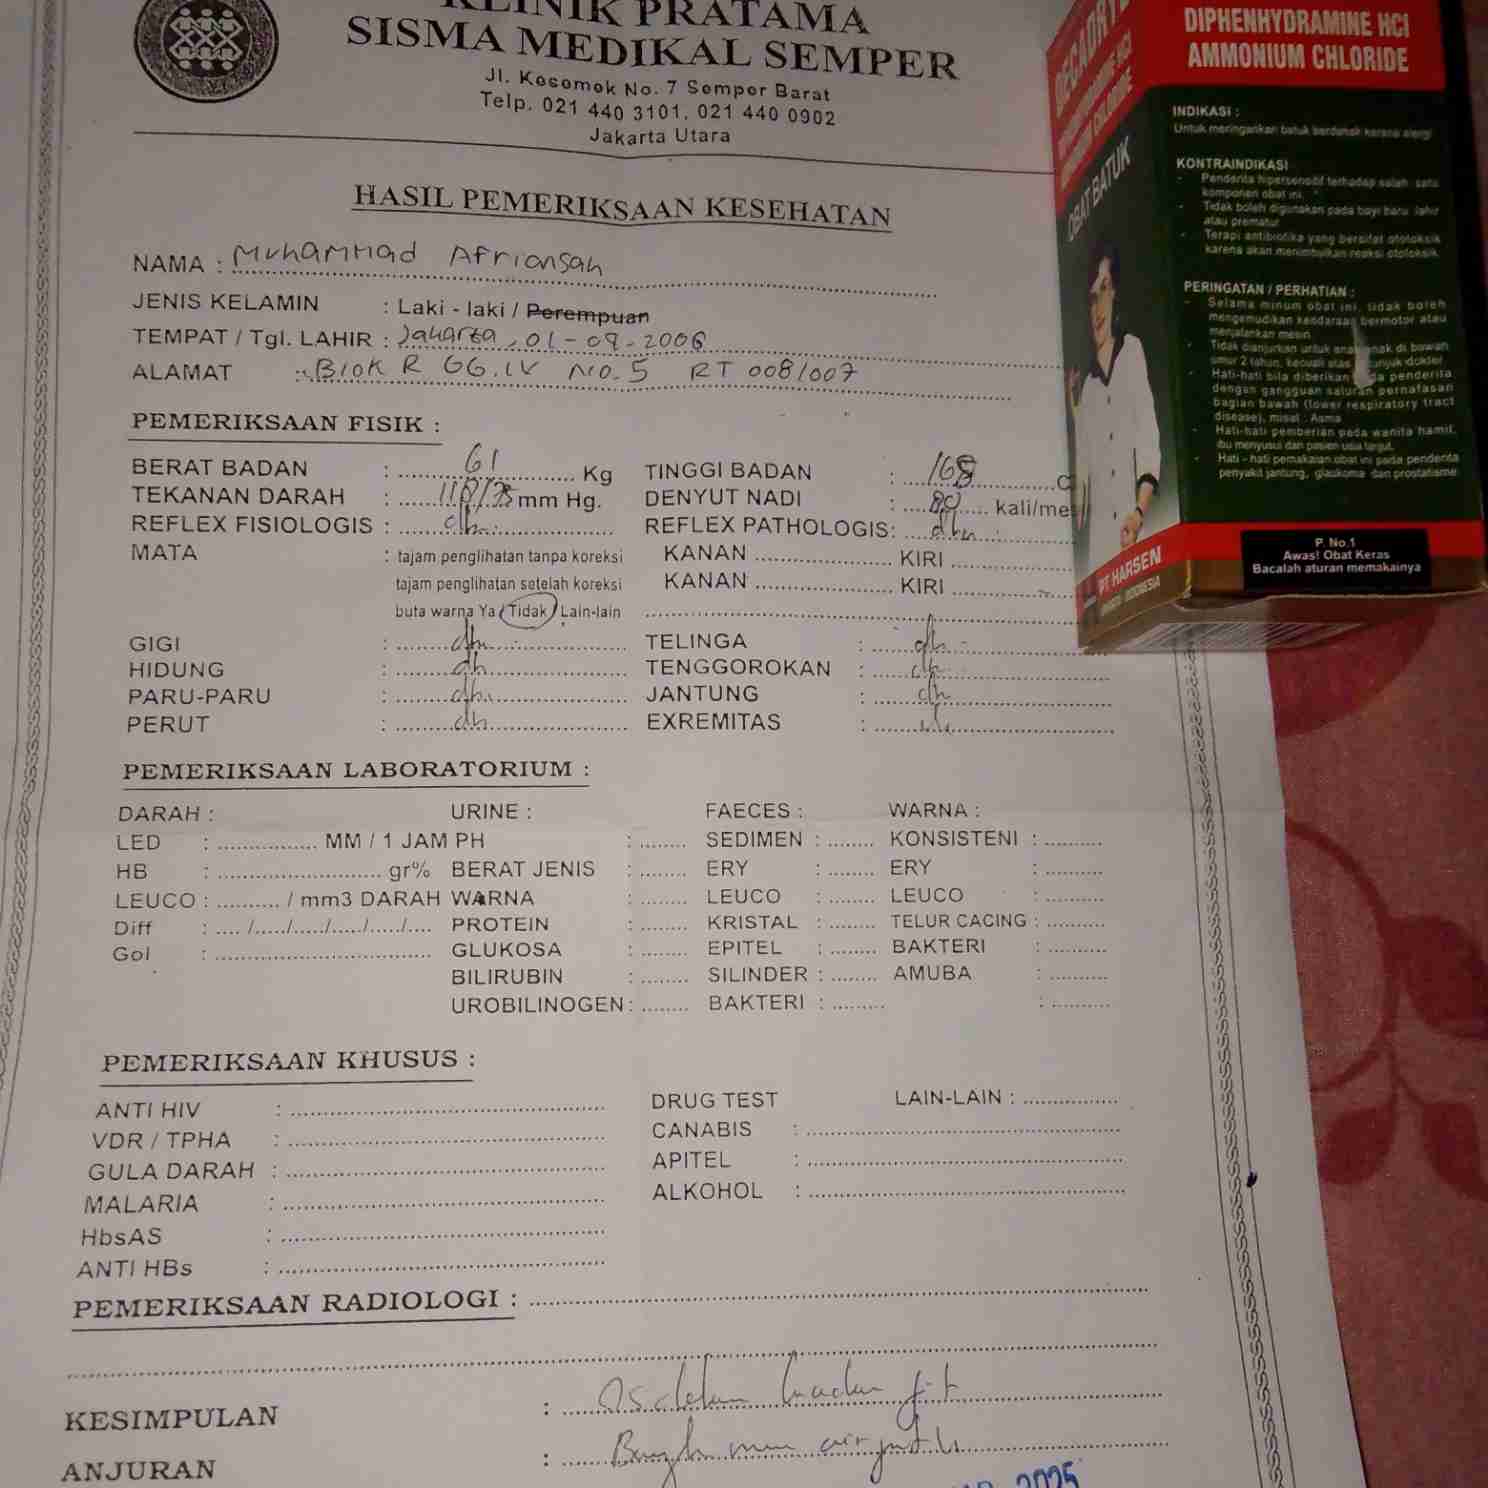 KLINIK PRATAMA
SISMA MEDIKAL SEMPER
Jl. Kosomok No. 7 Semper Barat
Telp. 021 440 3101, 021 440 0902
Jakarta Utara
HASIL PEMERIKSAAN KESEHATAN
NAMA : Muhammad Afriansah
JENIS KELAMIN : Laki - laki / Perempuan
TEMPAT / Tgl. LAHIR : Jakarta, 01-09-2006
ALAMAT : Blok R GG.IV No.5 RT 008/007
PEMERIKSAAN FISIK :
BERAT BADAN : 61 Kg TINGGI BADAN : 168
TEKANAN DARAH : 118/75 mm Hg. DENYUT NADI : 80 kali/me
REFLEX FISIOLOGIS : dbn REFLEX PATHOLOGIS: dbn
MATA : tajam penglihatan tanpa koreksi KANAN KIRI
tajam penglihatan setelah koreksi KANAN KIRI
buta warna Ya / Tidak / Lain-lain
GIGI : dbn TELINGA : dbn
HIDUNG : dbn TENGGOROKAN : dbn
PARU-PARU : dbn JANTUNG : dbn
PERUT : dbn EXREMITAS :
PEMERIKSAAN LABORATORIUM :
DARAH : URINE : FAECES : WARNA :
LED : MM / 1 JAM PH : SEDIMEN : KONSISTENI :
HB : gr% BERAT JENIS : ERY : ERY :
LEUCO : / mm3 DARAH WARNA : LEUCO : LEUCO :
Diff : .... /...../...../...../...../.... PROTEIN : KRISTAL : TELUR CACING :
Gol : GLUKOSA : EPITEL : BAKTERI :
BILIRUBIN : SILINDER : AMUBA :
UROBILINOGEN : BAKTERI : :
PEMERIKSAAN KHUSUS :
ANTI HIV : DRUG TEST LAIN-LAIN :
VDR / TPHA : CANABIS :
GULA DARAH : APITEL :
MALARIA : ALKOHOL :
HbsAS :
ANTI HBs :
PEMERIKSAAN RADIOLOGI :
KESIMPULAN : badan fit
ANJURAN : air putih
2025
DIPHENHYDRAMINE HCl
AMMONIUM CHLORIDE
INDIKASI :
Untuk meringankan batuk berdahak karena alergi
KONTRAINDIKASI
- Penderita hipersensitif terhadap salah satu
komponen obat ini.
- Tidak boleh digunakan pada bayi baru lahir
atau prematur
- Terapi antibiotika yang bersifat ototoksik
karena akan menimbulkan reaksi ototoksik.
PERINGATAN / PERHATIAN :
- Selama minum obat ini, tidak boleh
mengemudikan kendaraan bermotor atau
menjalankan mesin
- Tidak dianjurkan untuk anak-anak di bawah
umur 2 tahun, kecuali atas petunjuk dokter
- Hati-hati bila diberikan pada penderita
dengan gangguan saluran pernafasan
bagian bawah (lower respiratory tract
disease), misal : Asma
- Hati-hati pemberian pada wanita hamil,
ibu menyusui dan pasien usia lanjut.
- Hati - hati pemakaian obat ini pada penderita
penyakit jantung, glaukoma dan prostatisme
P. No.1
Awas! Obat Keras
Bacalah aturan memakainya
OBAT BATUK
PT HARSEN
INDONESIA